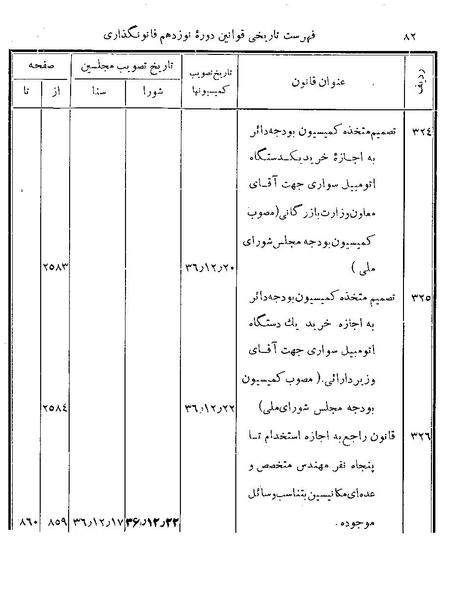 ۸۲ فهرست تاریخی قوانین دورهٔ نوزدهم قانونگذاری
ردیف عنوان قانون تاریخ تصویب کمیسیونها تاریخ تصویب مجلسین صفحه
شورا سنا از تا
۳۲۴ تصمیم متخذه کمیسیون بودجه دائر
به اجازهٔ خرید یکدستگاه
اتومبیل سواری جهت آقای
معاون وزارت بازرگانی (مصوب
کمیسیون بودجه مجلس شورای
ملی) ۳۶٫۱۲٫۲۰ ۲۵۸۳
۳۲۵ تصمیم متخذه کمیسیون بودجه دائر
به اجازه خرید یك دستگاه
اتومبیل سواری جهت آقای
وزیر دارائی. (مصوب کمیسیون
بودجه مجلس شورای ملی) ۳۶٫۱۲٫۲۲ ۲۵۸۴
۳۲۶ قانون راجع به اجازه استخدام تا
پنجاه نفر مهندس متخصص و
عده‌ای مکانیسین بتناسب وسائل
موجوده. ۳۶٫۱۲٫۲۲ ۳۶٫۱۲٫۱۷ ۸۵۹ ۸۶۰